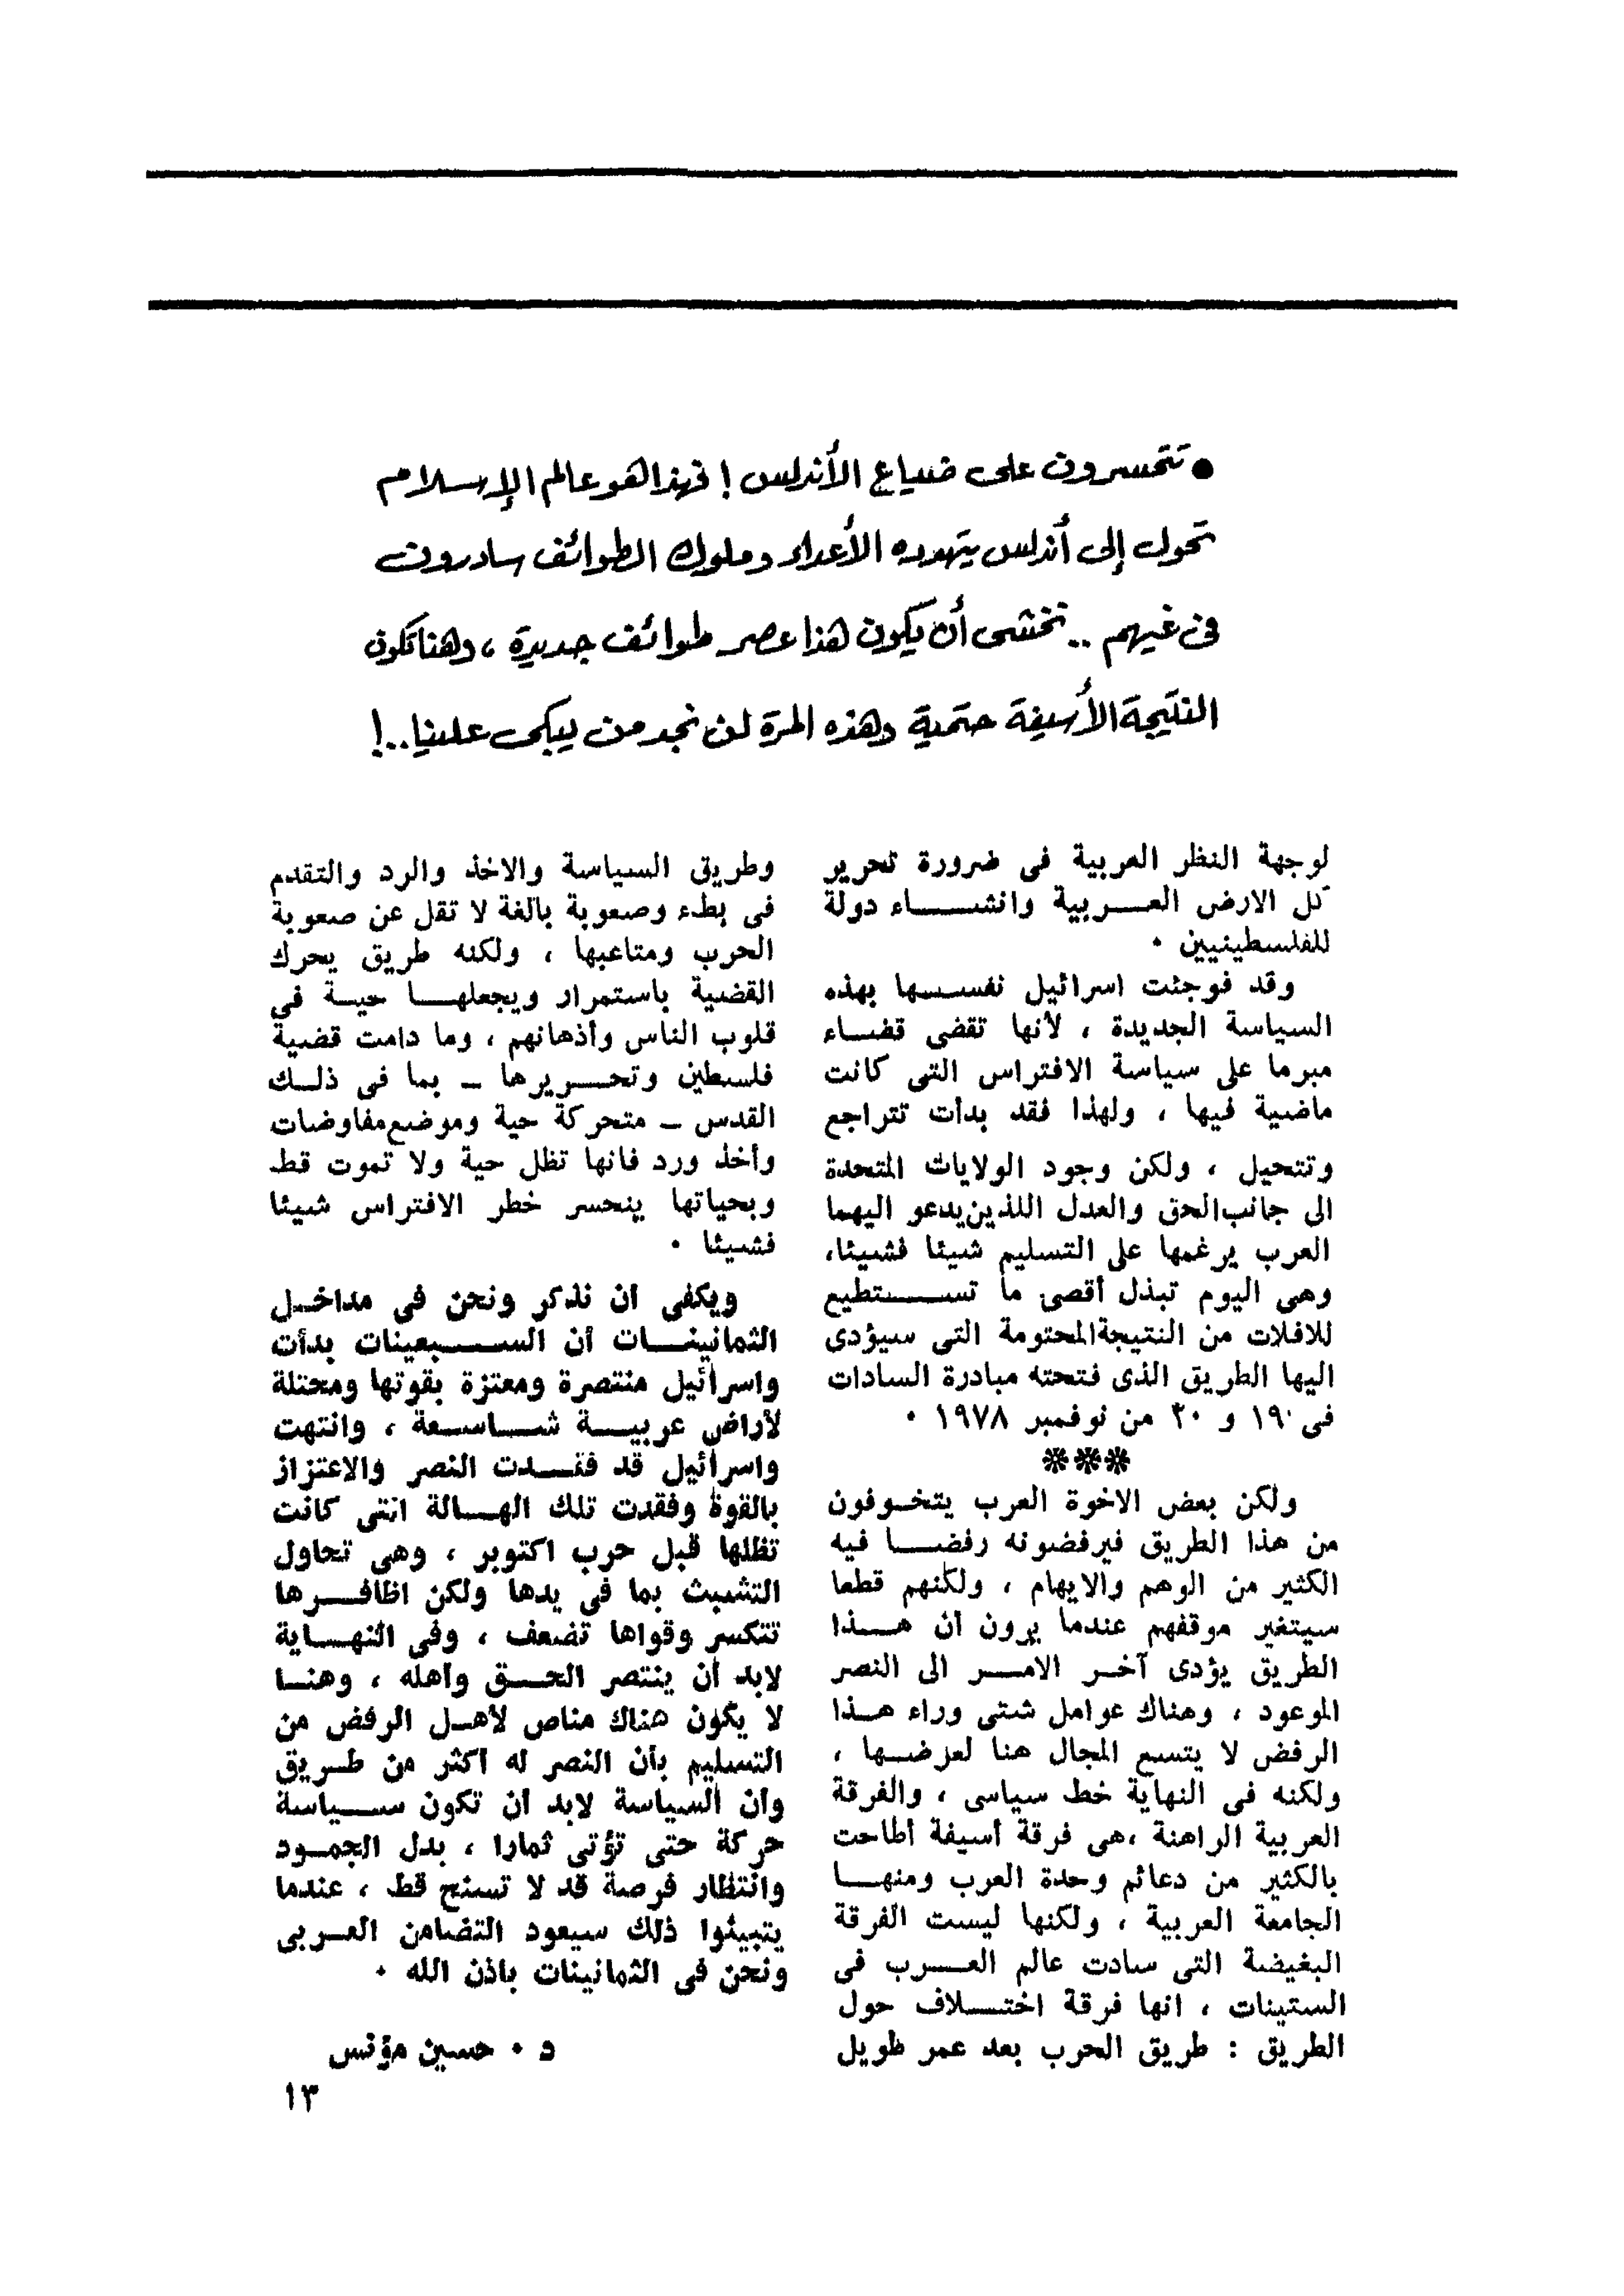 ● تتحسرون على ضياع الأندلس ! فهذا هو عالم الإسلام
تحول إلى أندلس يتهدده الأعداء وملوك الطوائف سادرون
فى غيهم .. نخشى أن يكون هذا عصر طوائف جديدة ، وهنا تكون
النتيجة الأسيفة حتمية وهذه المرة لن نجد من يبكى علينا..!
لوجهة النظر العربية فى ضرورة تحرير
كل الارض العربية وانشاء دولة
للفلسطينيين ٠
وقد فوجئت اسرائيل نفسها بهذه
السياسة الجديدة ، لأنها تقضى قضاء
مبرما على سياسة الافتراس التى كانت
ماضية فيها ، ولهذا فقد بدأت تتراجع
وتتحيل ، ولكن وجود الولايات المتحدة
الى جانب الحق والعدل اللذين يدعو اليهما
العرب يرغمها على التسليم شيئا فشيئا،
وهى اليوم تبذل أقصى ما تستطيع
للافلات من النتيجة المحتومة التى سيؤدى
اليها الطريق الذى فتحته مبادرة السادات
فى ١٩ و ٢٠ من نوفمبر ١٩٧٨ ٠
***
ولكن بعض الاخوة العرب يتخوفون
من هذا الطريق فيرفضونه رفضا فيه
الكثير من الوهم والايهام ، ولكنهم قطعا
سيتغير موقفهم عندما يرون أن هذا
الطريق يؤدى آخر الامر الى النصر
الموعود ، وهناك عوامل شتى وراء هذا
الرفض لا يتسع المجال هنا لعرضها ،
ولكنه فى النهاية خط سياسى ، والفرقة
العربية الراهنة ،هى فرقة أسيفة أطاحت
بالكثير من دعائم وحدة العرب ومنها
الجامعة العربية ، ولكنها ليست الفرقة
البغيضة التى سادت عالم العرب فى
الستينات ، انها فرقة اختلاف حول
الطريق : طريق الحرب بعد عمر طويل
وطريق السياسة والاخذ والرد والتقدم
فى بطء وصعوبة بالغة لا تقل عن صعوبة
الحرب ومتاعبها ، ولكنه طريق يحرك
القضية باستمرار ويجعلها حية فى
قلوب الناس وأذهانهم ، وما دامت قضية
فلسطين وتحريرها – بما فى ذلك
القدس – متحركة حية وموضع مفاوضات
وأخذ ورد فانها تظل حية ولا تموت قط
وبحياتها ينحسر خطر الافتراس شيئا
فشيئا ٠
ويكفى أن نذكر ونحن فى مداخل
الثمانينات أن السبعينات بدأت
واسرائيل منتصرة ومعتزة بقوتها ومحتلة
لأراض عربية شاسعة ، وانتهت
واسرائيل قد فقدت النصر والاعتزاز
بالقوة وفقدت تلك الهالة التى كانت
تظلها قبل حرب اكتوبر ، وهى تحاول
التشبث بما فى يدها ولكن اظافرها
تتكسر وقواها تضعف ، وفى النهاية
لابد أن ينتصر الحق وأهله ، وهنا
لا يكون هناك مناص لأهل الرفض من
التسليم بأن النصر له أكثر من طريق
وأن السياسة لابد أن تكون سياسة
حركة حتى تؤتى ثمارا ، بدل الجمود
وانتظار فرصة قد لا تسنح قط ، عندما
يتبينوا ذلك سيعود التضامن العربى
ونحن فى الثمانينات باذن الله ٠
د ٠ حسين مؤنس
١٣